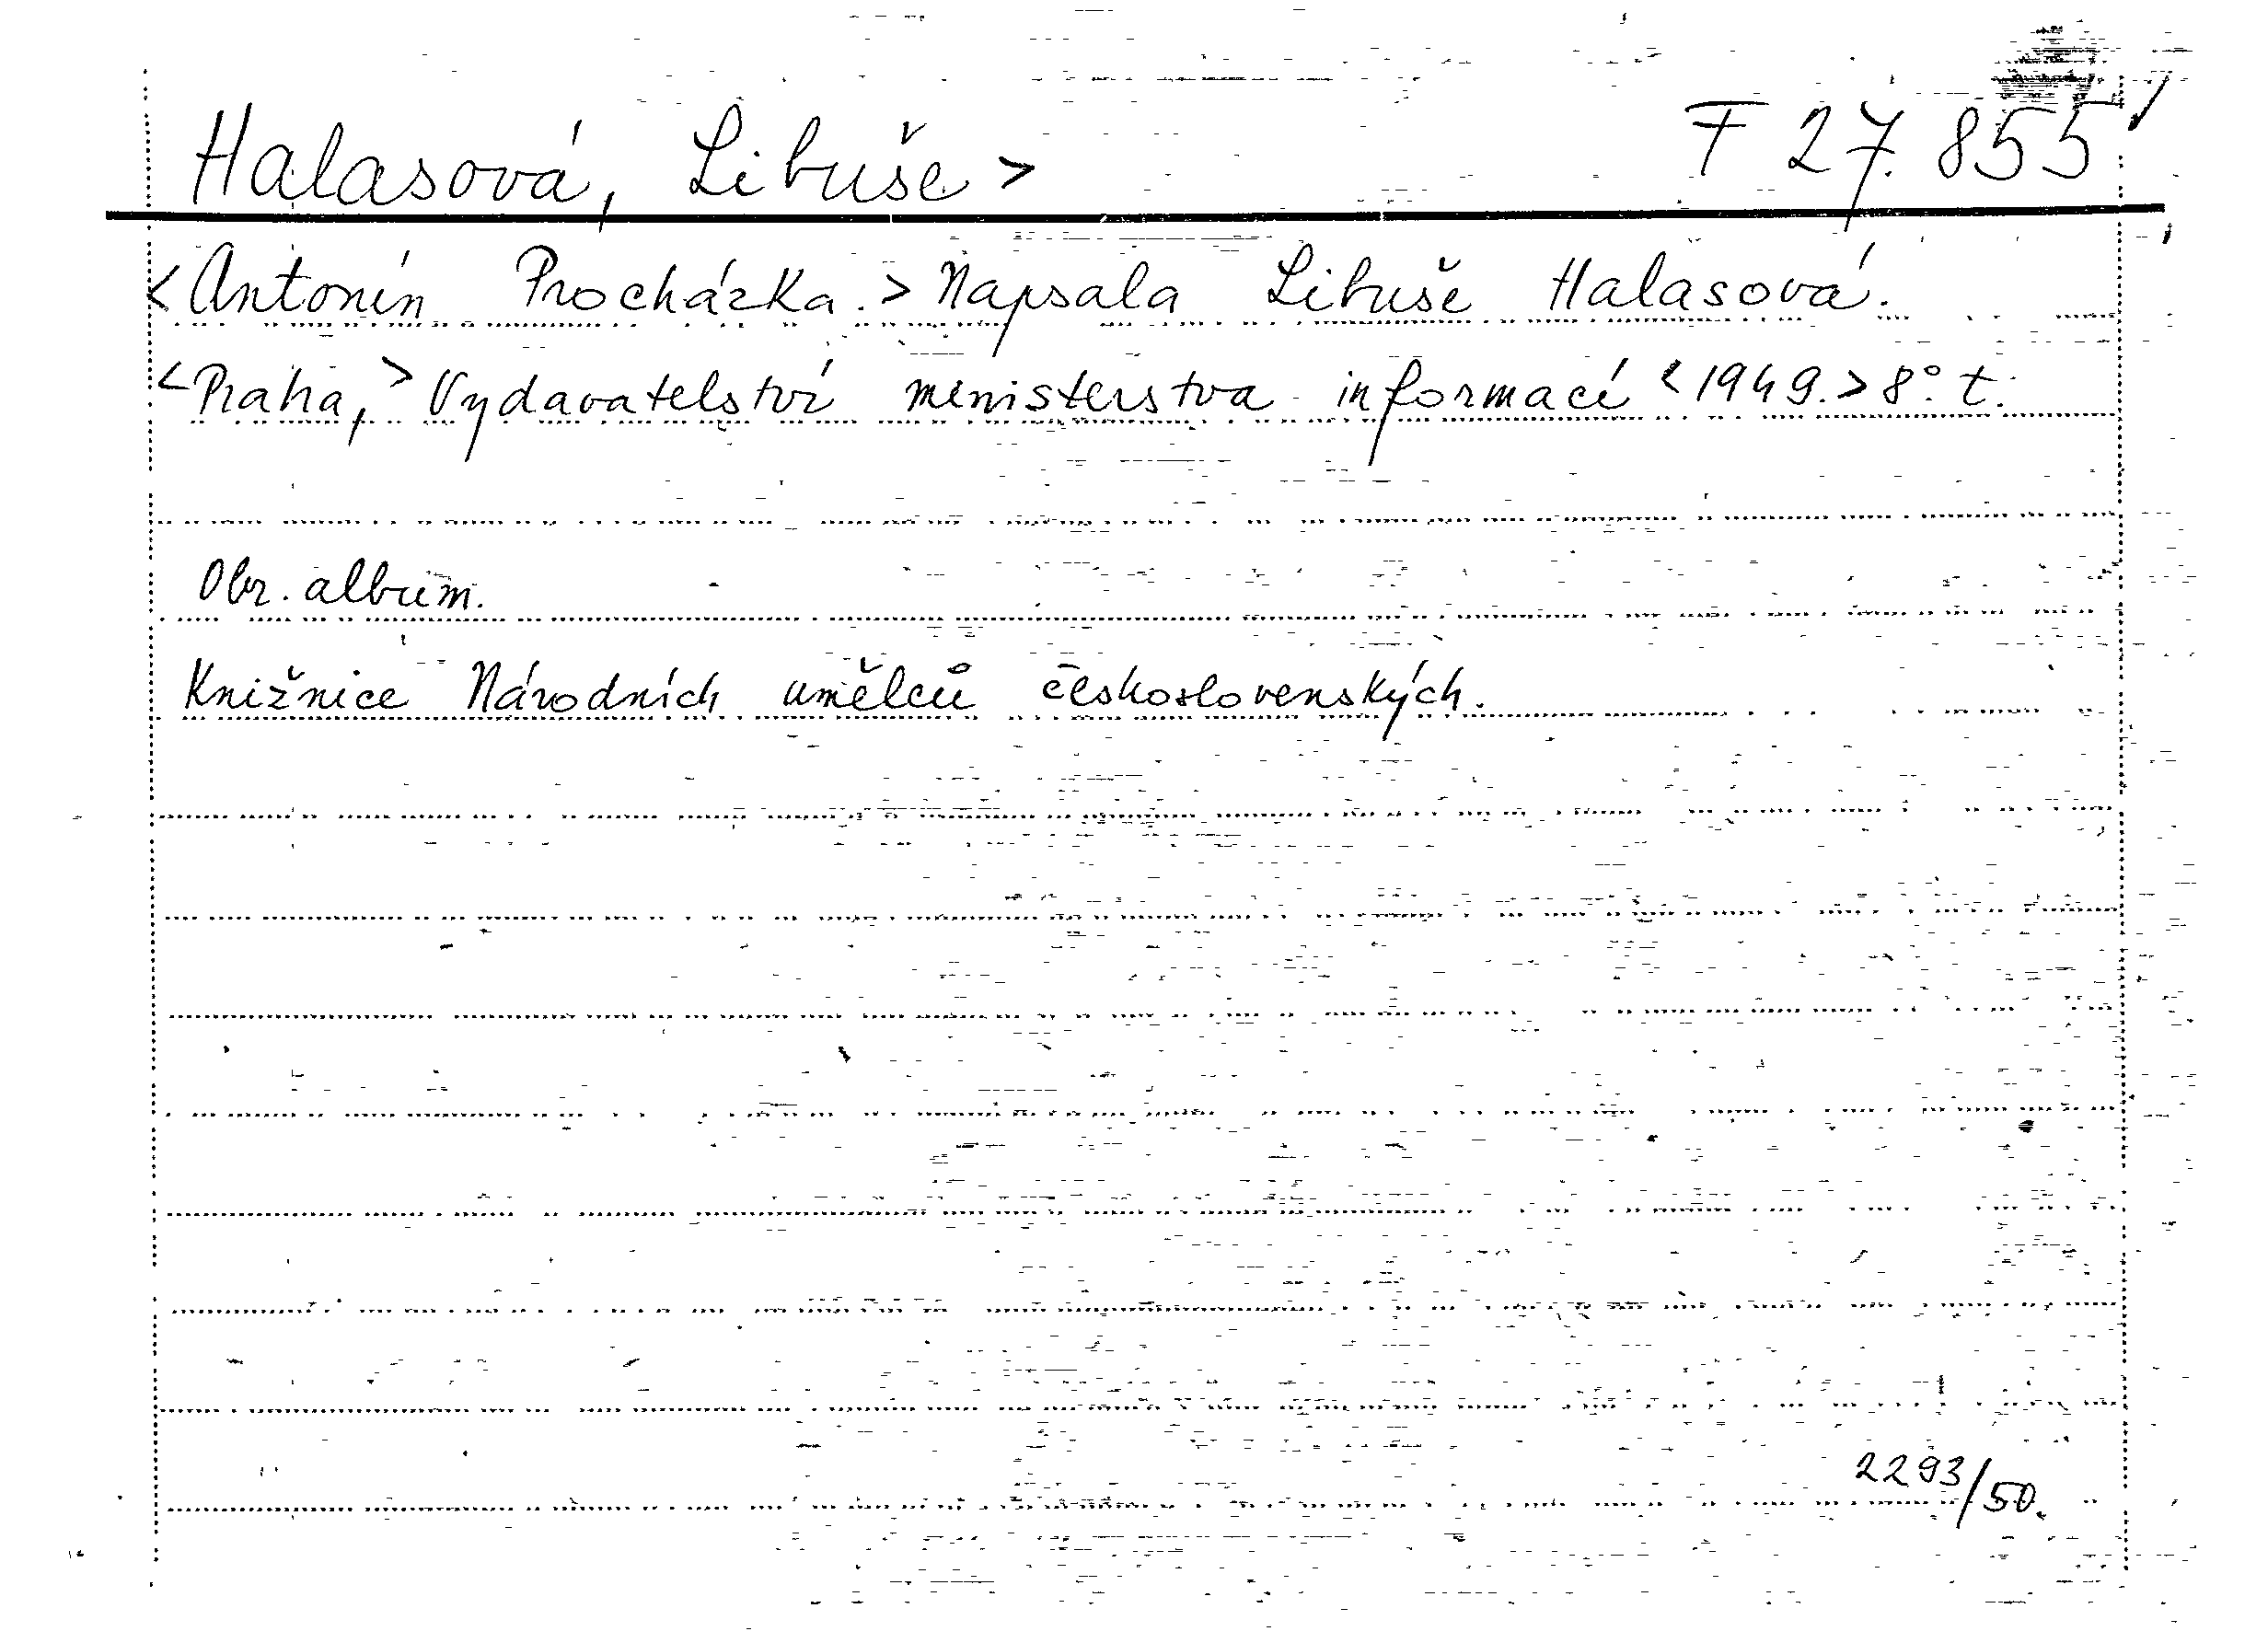 Halasová, Libuše > F 27.855
<Antonín Procházka.> Napsala Libuše Halasová.
<Praha,> Vydavatelství ministerstva informací <1949.> 8° t.
Obr. album.
Knižnice Národních umělců československých.
2293/50.